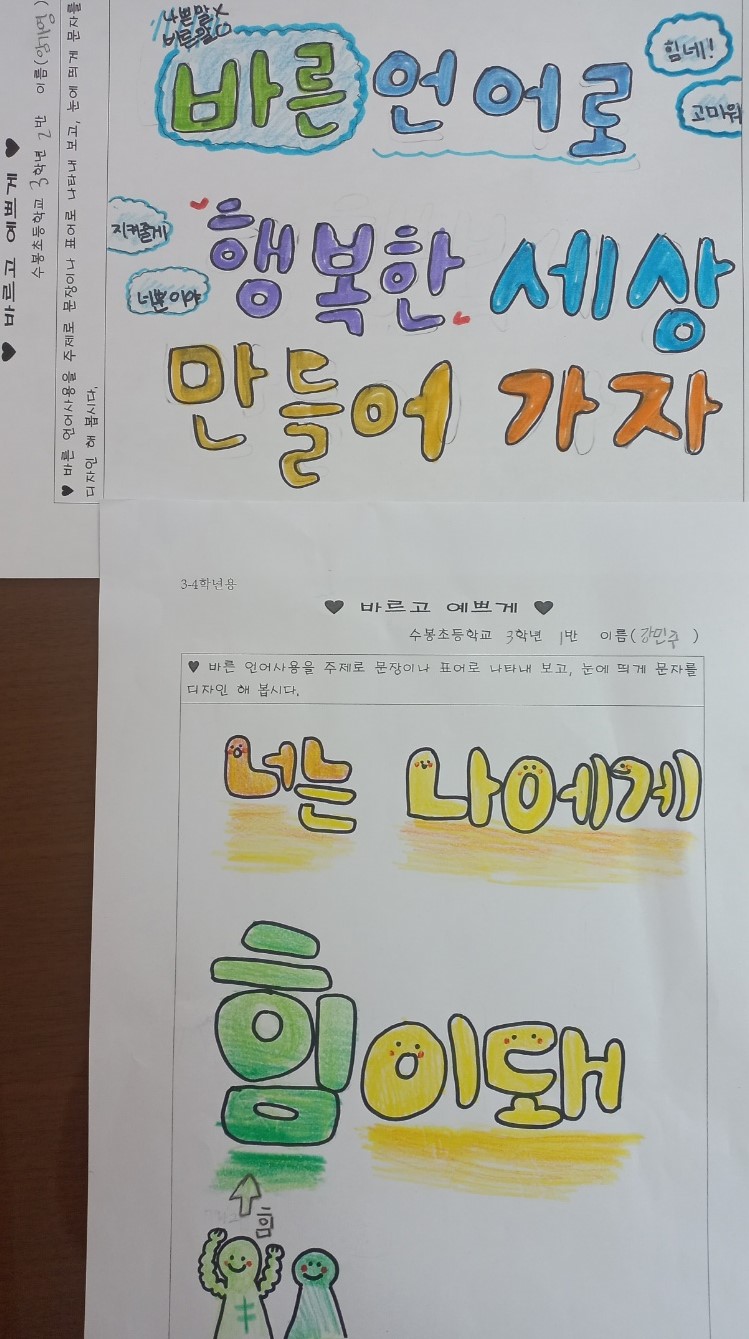 나쁜말X
바른말O
바른 언어로
힘네!
고마워
지켜줄게
너뿐이야
행복한 세상
만들어 가자
♥ 바르고 예쁘게 ♥
수봉초등학교 3학년 2반 이름( )
♥ 바른 언어사용을 주제로 문장이나 표어로 나타내 보고, 눈에 띄게 문자를
디자인 해 봅시다.
3-4학년용
♥ 바르고 예쁘게 ♥
수봉초등학교 3학년 1반 이름(강민주)
♥ 바른 언어사용을 주제로 문장이나 표어로 나타내 보고, 눈에 띄게 문자를
디자인 해 봅시다.
너는 나에게
힘이돼
힘